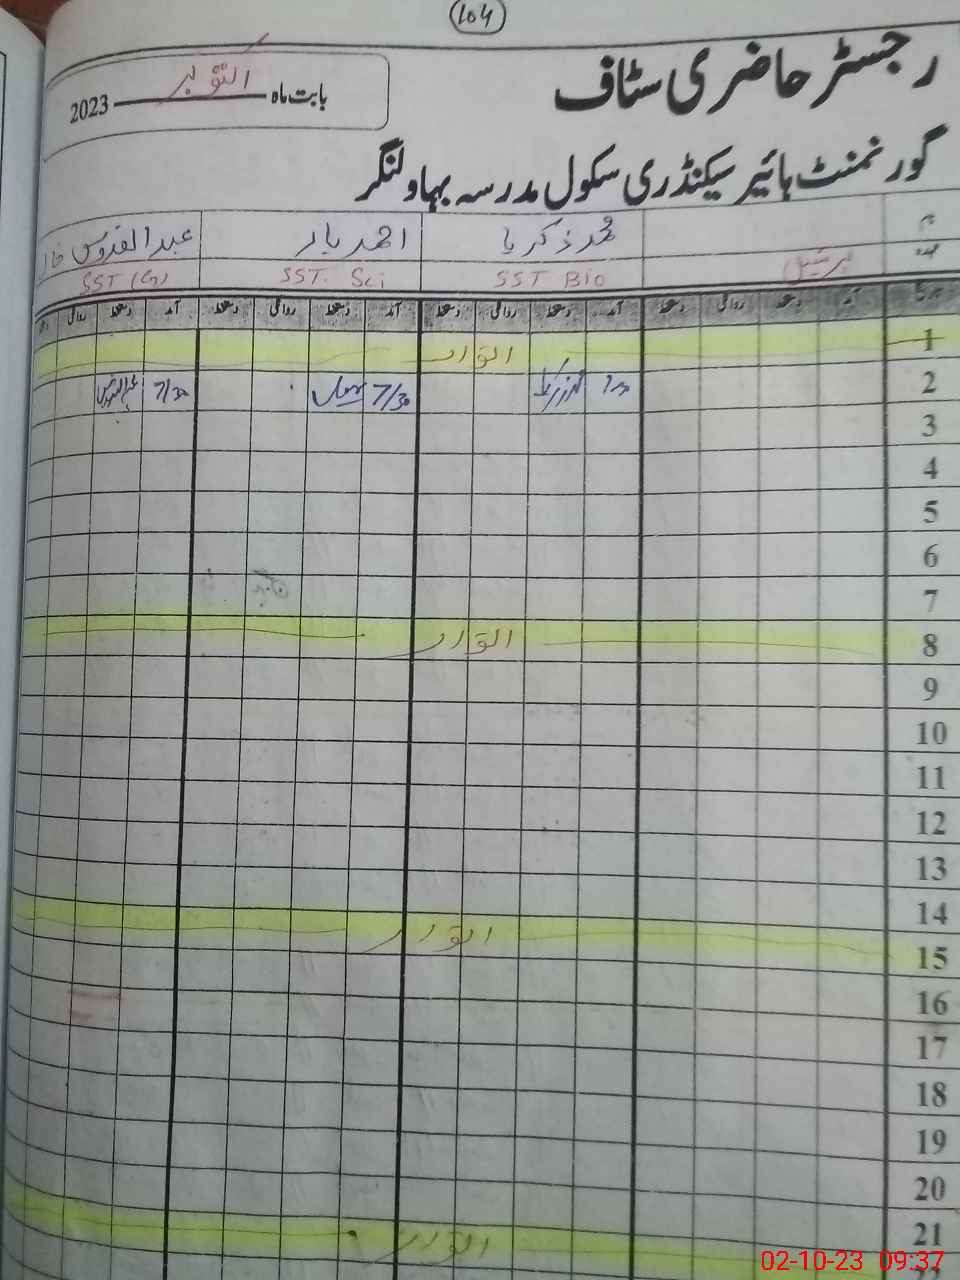 104
رجسٹر حاضری سٹاف
بابت ماہ اکتوبر 2023
گورنمنٹ ہائیر سیکنڈری سکول مدرسہ بہاولنگر
نام محمد زکریا احمد یار عبدالقدوس
عہدہ پرنسپل SST Bio SST. Sci SST (G)
آمد دستخط روانگی دستخط آمد دستخط روانگی دستخط آمد دستخط روانگی دستخط آمد دستخط روانگی
1 اتوار
2 7/30 7/30
3
4
5
6
7
8 اتوار
9
10
11
12
13
14
15 اتوار
16
17
18
19
20
21 اتوار
02-10-23 09:37